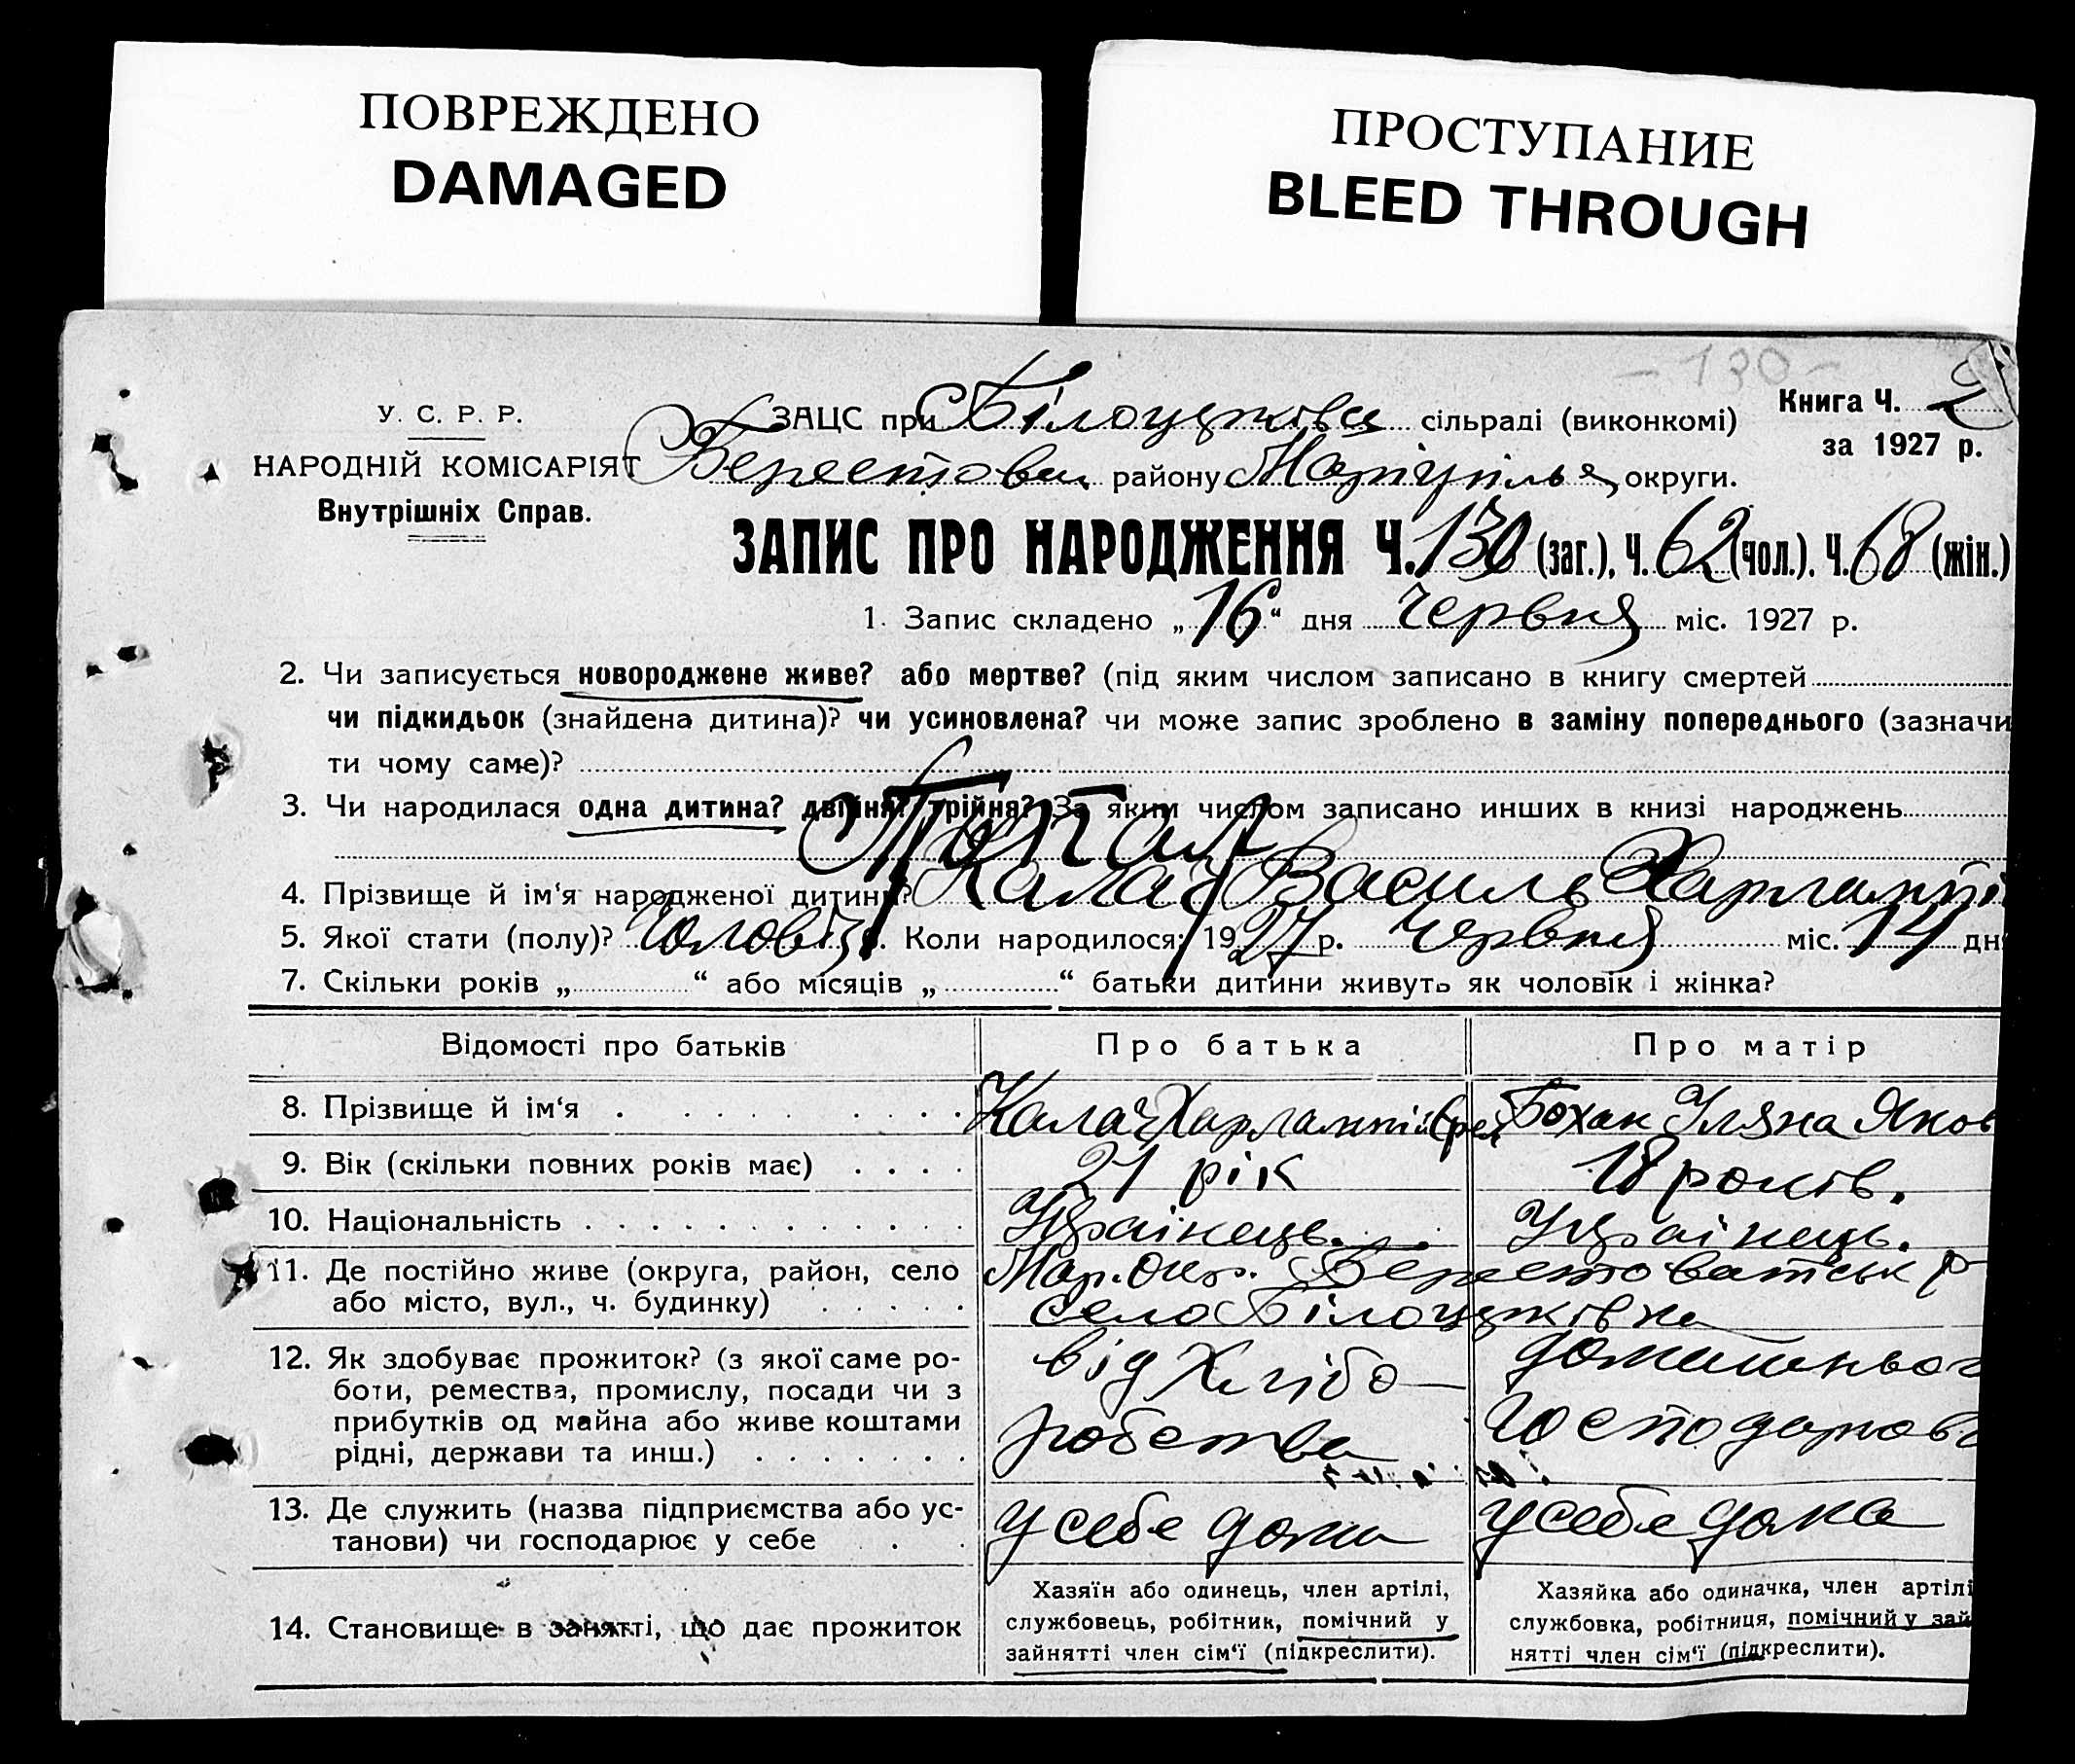 ПОВРЕЖДЕНО
DAMAGED
ПРОСТУПАНИЕ
BLEED THROUGH
- 130 -
У. С. Р. Р.
НАРОДНІЙ КОМІСАРІЯТ
Внутрішніх Справ.
ЗАЦС при Білоцерківці сільраді (виконкомі)
Берестовим району Маріупільск округи.
Книга Ч. 2
за 1927 р.
ЗАПИС ПРО НАРОДЖЕННЯ Ч. 130 (заг.), Ч. 62 (чол.). Ч. 68 (жін.)
1. Запис складено „16“ дня Червня міс. 1927 р.
2. Чи записується новороджене живе? або мертве? (під яким числом записано в книгу смертей
чи підкидьок (знайдена дитина)? чи усиновлена? чи може запис зроблено в заміну попереднього (зазначи
ти чому саме)?
3. Чи народилася одна дитина? двійня? трійня? За яким числом записано инших в книзі народжень
4. Прізвище й ім‘я народженої дитини? Калач Василь Харлампі
5. Якої стати (полу)? Чоловіч 6. Коли народилося: 1927 р. Червня міс. 14 дн
7. Скільки років „ “ або місяців „ “ батьки дитини живуть як чоловік і жінка?
Відомості про батьків Про батька Про матір
8. Прізвище й ім‘я Калач Харлампій Бохан Уляна Яков
9. Вік (скільки повних років має) 21 рік 18 років.
10. Національність Українець. Українець.
11. Де постійно живе (округа, район, село Мар. окр. Берестоватськ р
або місто, вул., ч. будинку) село Білоцерківка
12. Як здобуває прожиток? (з якої саме ро- від Хлібо- домашньог
боти, ремества, промислу, посади чи з
прибутків од майна або живе коштами робства господарства
рідні, держави та инш.)
13. Де служить (назва підприємства або ус- у себе дома у себе дома
танови) чи господарює у себе
14. Становище в занятті, що дає прожиток
Хазяїн або одинець, член артілі,
службовець, робітник, помічний у
зайнятті член сім‘ї (підкреслити).
Хазяйка або одиначка, член артілі
службовка, робітниця, помічний у зай
нятті член сім‘ї (підкреслити).